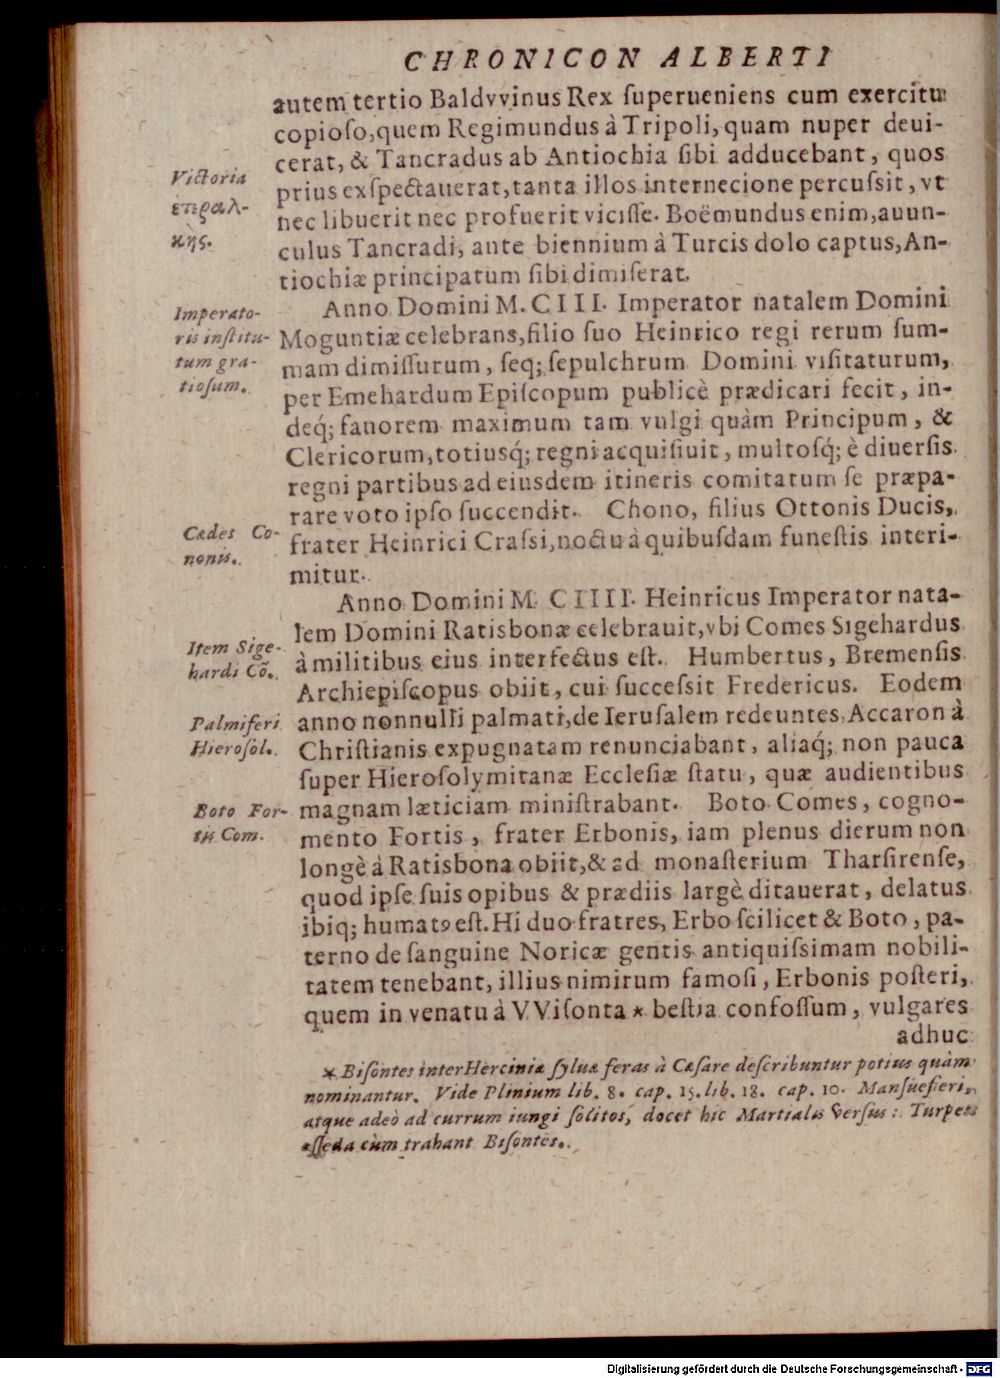 CHRONICON ALBERTI
autem tertio Baldvvinus Rex ſuperueniens cum exercitu
copioſo, quem Regimundus à Tripoli, quam nuper deui-
cerat, & Tancradus ab Antiochia ſibi adducebant, quos
Victoria
prius exſpectauerat, tanta illos internecione percuſsit, vt
επιραλ-
nec libuerit nec profuerit viciſſe. Boëmundus enim, auun-
κὴς.
culus Tancradi, ante biennium à Turcis dolo captus, An-
tiochiæ principatum ſibi dimiſerat.
Anno Domini M. C III. Imperator natalem Domini
Imperato-
ris inſtitu-
tum gra-
tioſum.
Moguntiæ celebrans, filio ſuo Heinrico regi rerum ſum-
mam dimiſſurum, ſeq; ſepulchrum Domini viſitaturum,
per Emehardum Epiſcopum publicè prædicari fecit, in-
deq́; fauorem maximum tam vulgi quàm Principum, &
Clericorum, totiusq́; regni acquiſiuit, multoſq́; è diuerſis
regni partibus ad eiusdem itineris comitatum ſe præpa-
rare voto ipſo ſuccendit. Chono, filius Ottonis Ducis,
Cædes Co-
nonis.
frater Heinrici Craſsi, noctu à quibuſdam funeſtis interi-
mitur.
Anno Domini M. C IIII. Heinricus Imperator nata-
lem Domini Ratisbonæ celebrauit, vbi Comes Sigehardus
Item Sige-
hardi Cõ.
à militibus eius interfectus eſt. Humbertus, Bremenſis
Archiepiſcopus obiit, cui ſucceſsit Fredericus. Eodem
Palmiferi
Hieroſol.
anno nonnulli palmati, de Ieruſalem redeuntes, Accaron à
Chriſtianis expugnatam renunciabant, aliaq́; non pauca
ſuper Hieroſolymitanæ Eccleſiæ ſtatu, quæ audientibus
Boto For-
tis Com.
magnam læticiam miniſtrabant. Boto Comes, cogno-
mento Fortis, frater Erbonis, iam plenus dierum non
longè à Ratisbona obiit, & ad monaſterium Tharſirenſe,
quod ipſe ſuis opibus & prædiis largè ditauerat, delatus
ibiq; humatꝰ eſt. Hi duo fratres, Erbo ſcilicet & Boto, pa-
terno de ſanguine Noricæ gentis antiquiſsimam nobili-
tatem tenebant, illius nimirum famoſi, Erbonis poſteri,
quem in venatu à VViſonta * beſtia confoſſum, vulgares
adhuc
* Biſontes inter Herciniæ ſyluæ feras à Cæſare deſcribuntur potius quàm
nominantur. Vide Plinium lib. 8. cap. 15. lib. 18. cap. 10. Manſuefieri,
atque adeò ad currum iungi ſolitos, docet hic Martialis verſus: Turpes
eſſeda cùm trahant Biſontes.
Digitalisierung gefördert durch die Deutsche Forschungsgemeinschaft - DFG